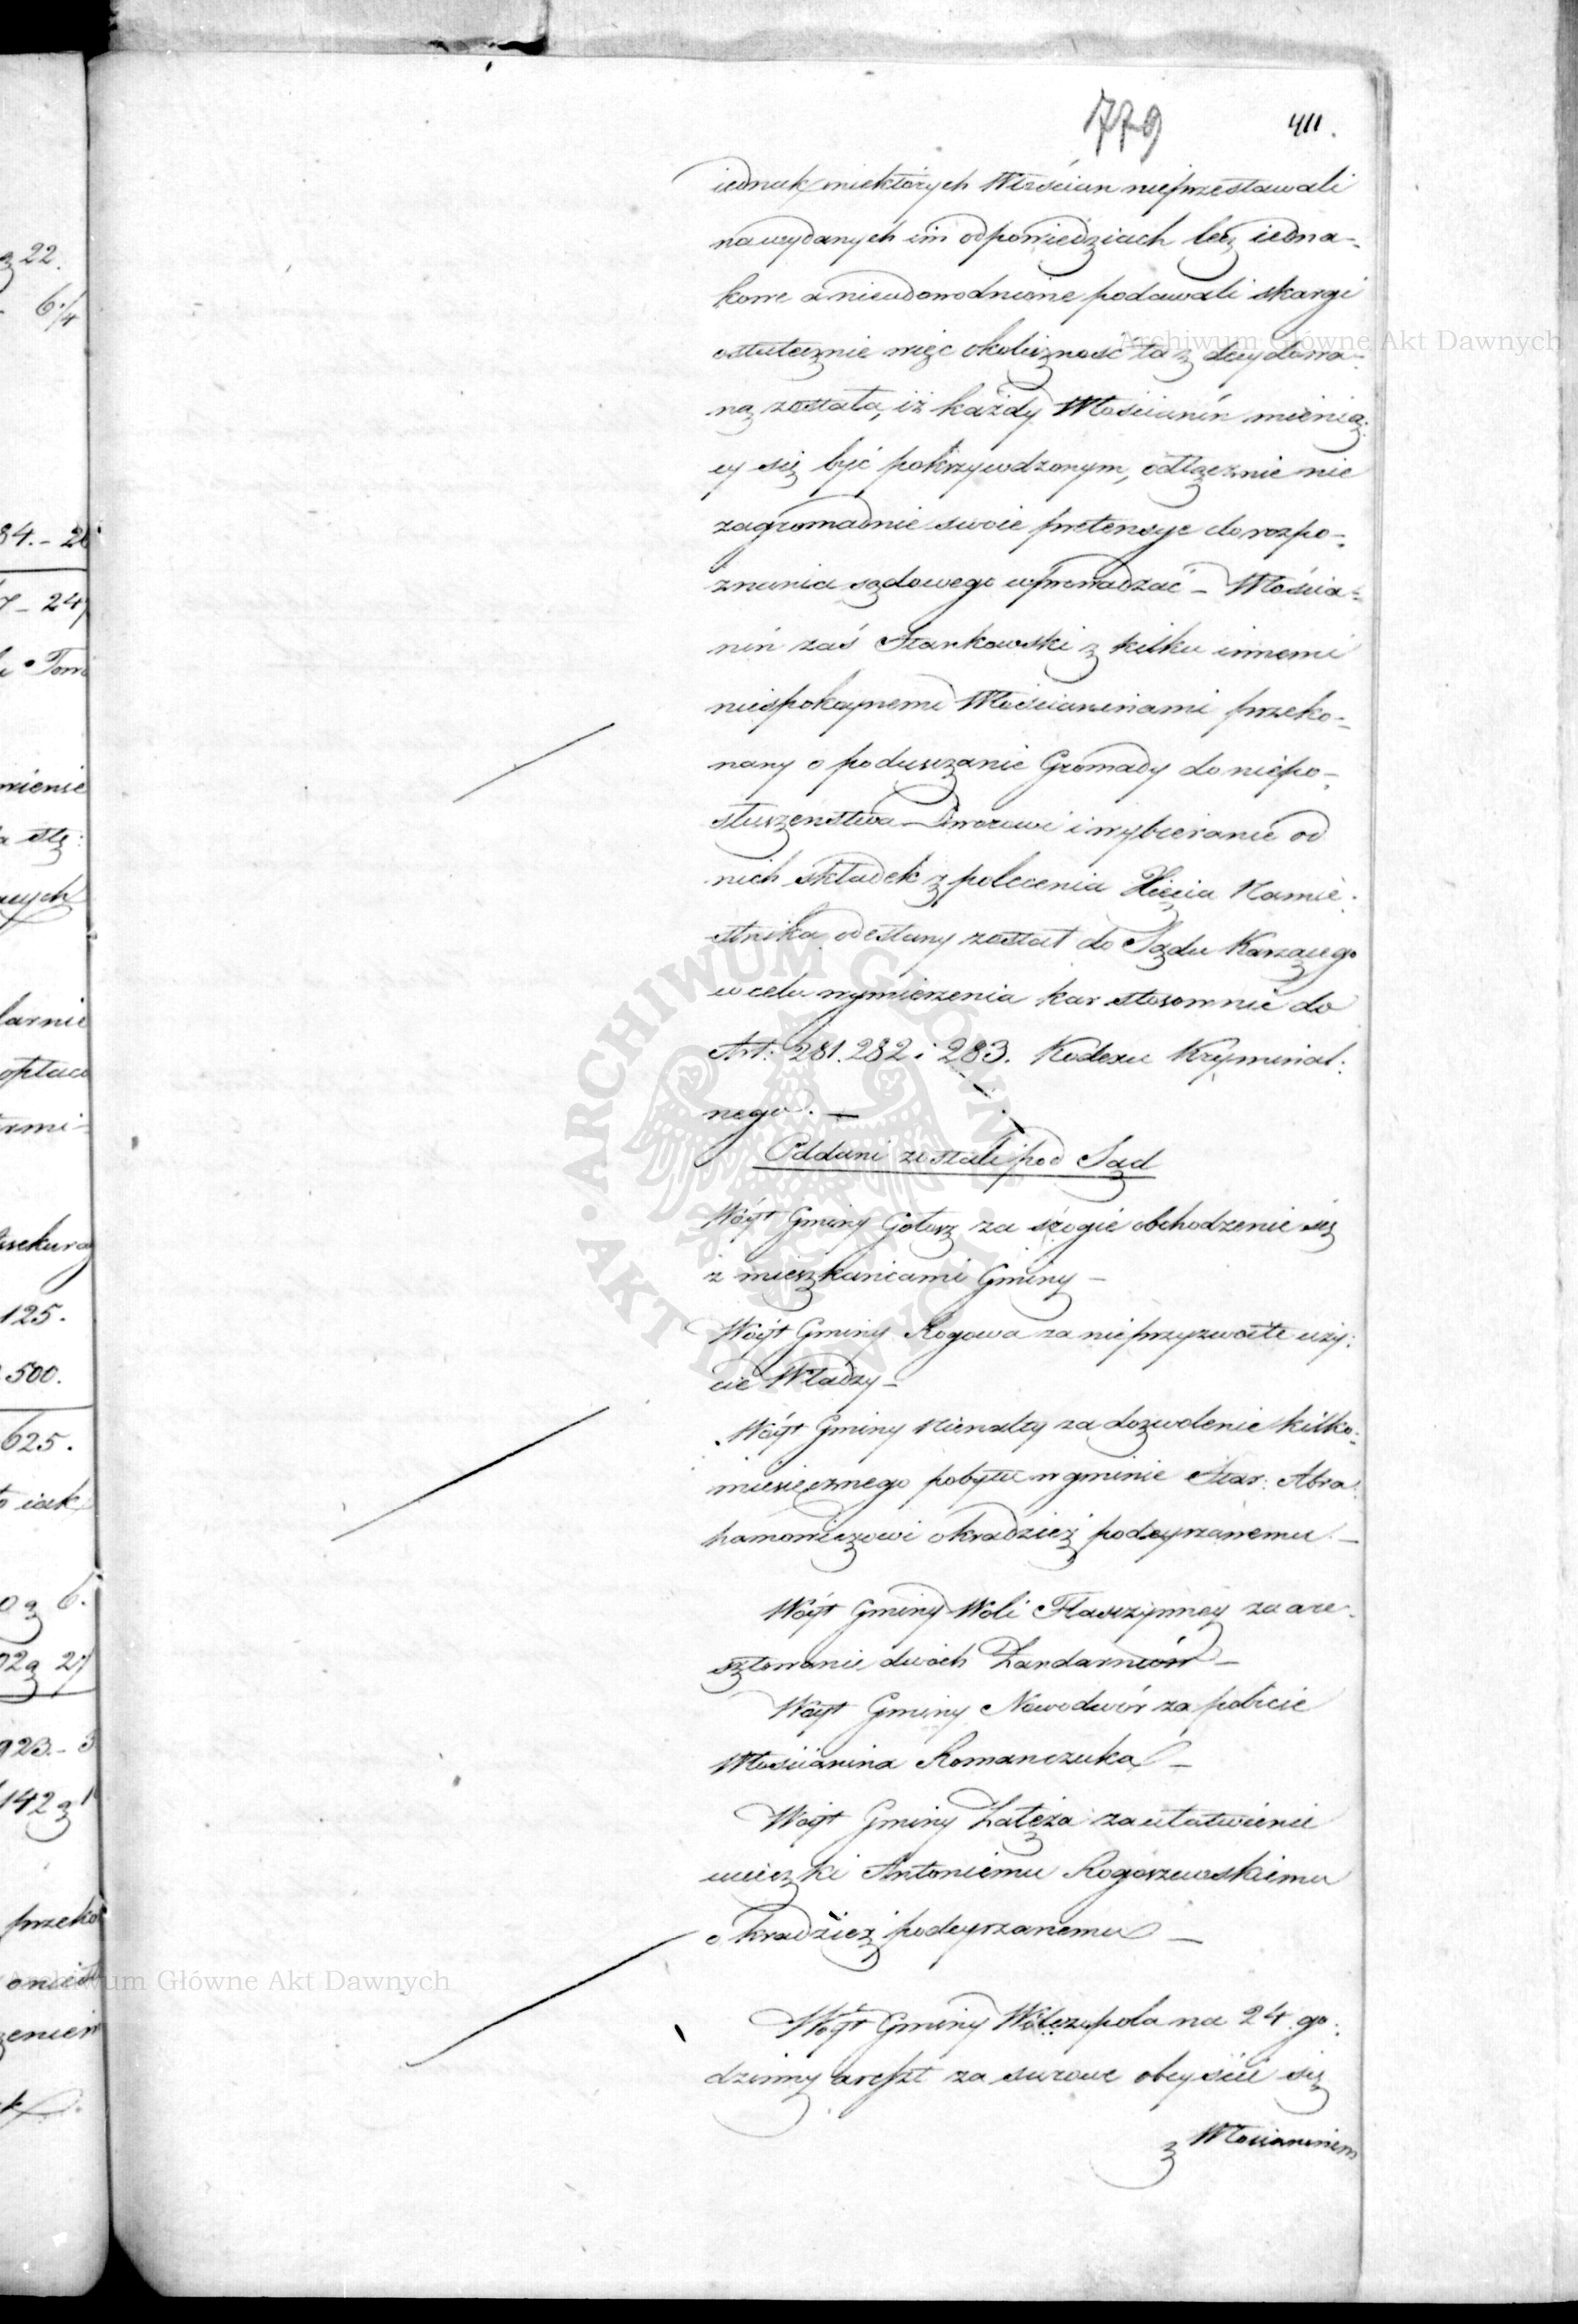 779 411.
iednak niektórych Włościan nieprzestawali
na wydanych im odpowiedziach lecz iedna-
kowe a nieudowodnione podawali skargi
ostatecznie więc okoliczność ta zdecydowa-
ną została, iż każdy Włościanin mienią-
cy się być pokrzywdzonym, odłącznie nie
zagromadnie swoie pretensye do rozpo-
znania sądowego wprowadzać – Włościa-
nin zaś Starkowski z kilku innemi
niespokoynemi Włościaninami przeko-
nany o poduszczanie Gromady do niepo-
słuszeństwa Dworowi i wybieranie od
nich składek z polecenia Xięcia Namie-
stnika odesłany został do Sądu Karzącego
w celu wymierzenia kar stosownie do
Art: 281. 282 i 283. Kodexu Kryminal-
nego. —
Oddani zostali pod Sąd
Wóyt Gminy za srogie obchodzenie się
z mieszkańcami Gminy –
Wóyt Gminy Rogowa za nieprzyzwoite uży-
cie Władzy –
Wóyt Gminy za dozwolenie kilko-
miesięcznego pobytu w gminie Star: Abra-
hamowiczowi o kradzież podeyrzanemu. –
Wóyt Gminy Woli za are-
sztowanie dwóch Żandarmów –
Wóyt Gminy Nowodwór za pobicie
Włościanina Romanczuka –
Wóyt Gminy za ułatwienie
ucieczki Antoniemu Rogoszewskiemu
o kradzież podeyrzanemu –
Wóyt Gminy na 24 go-
dzinny areszt za surowe obeyście się
z Włościaninem
Archiwum Główne Akt Dawnych
Archiwum Główne Akt Dawnych
ARCHIWUM GŁÓWNE AKT DAWNYCH